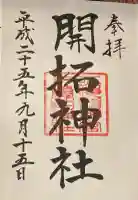 奉拝
開拓神社
平成二十五年九月十五日